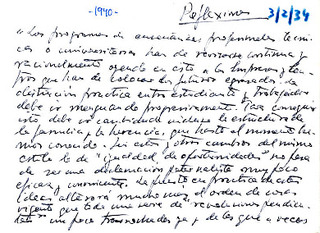 -1940-
Reflexión
3/2/34
"Los programas de enseñanzas profesionales técni-
cas o universitarias han de revisarse continua y
racionalmente oyendo en esto a las empresas y cen-
tros que han de colocar los futuros egresados. La
distinción práctica entre estudiante y trabajador
debe ir menguando progresivamente. Para conseguir
esto debe ir cambiando incluso la estructura de
la familia y la herencia, que hasta el momento he-
mos conocido. Sin estos y otros cambios del mismo
estilo lo de "igualdad de oportunidades" no pasa
de ser una declaración paternalista muy poco
eficaz y convincente. La puesta en práctica de estas
ideas alterará mucho más el orden de cosas
vigente que toda una serie de "revoluciones
un poco trasnochadas ya y de las que a veces